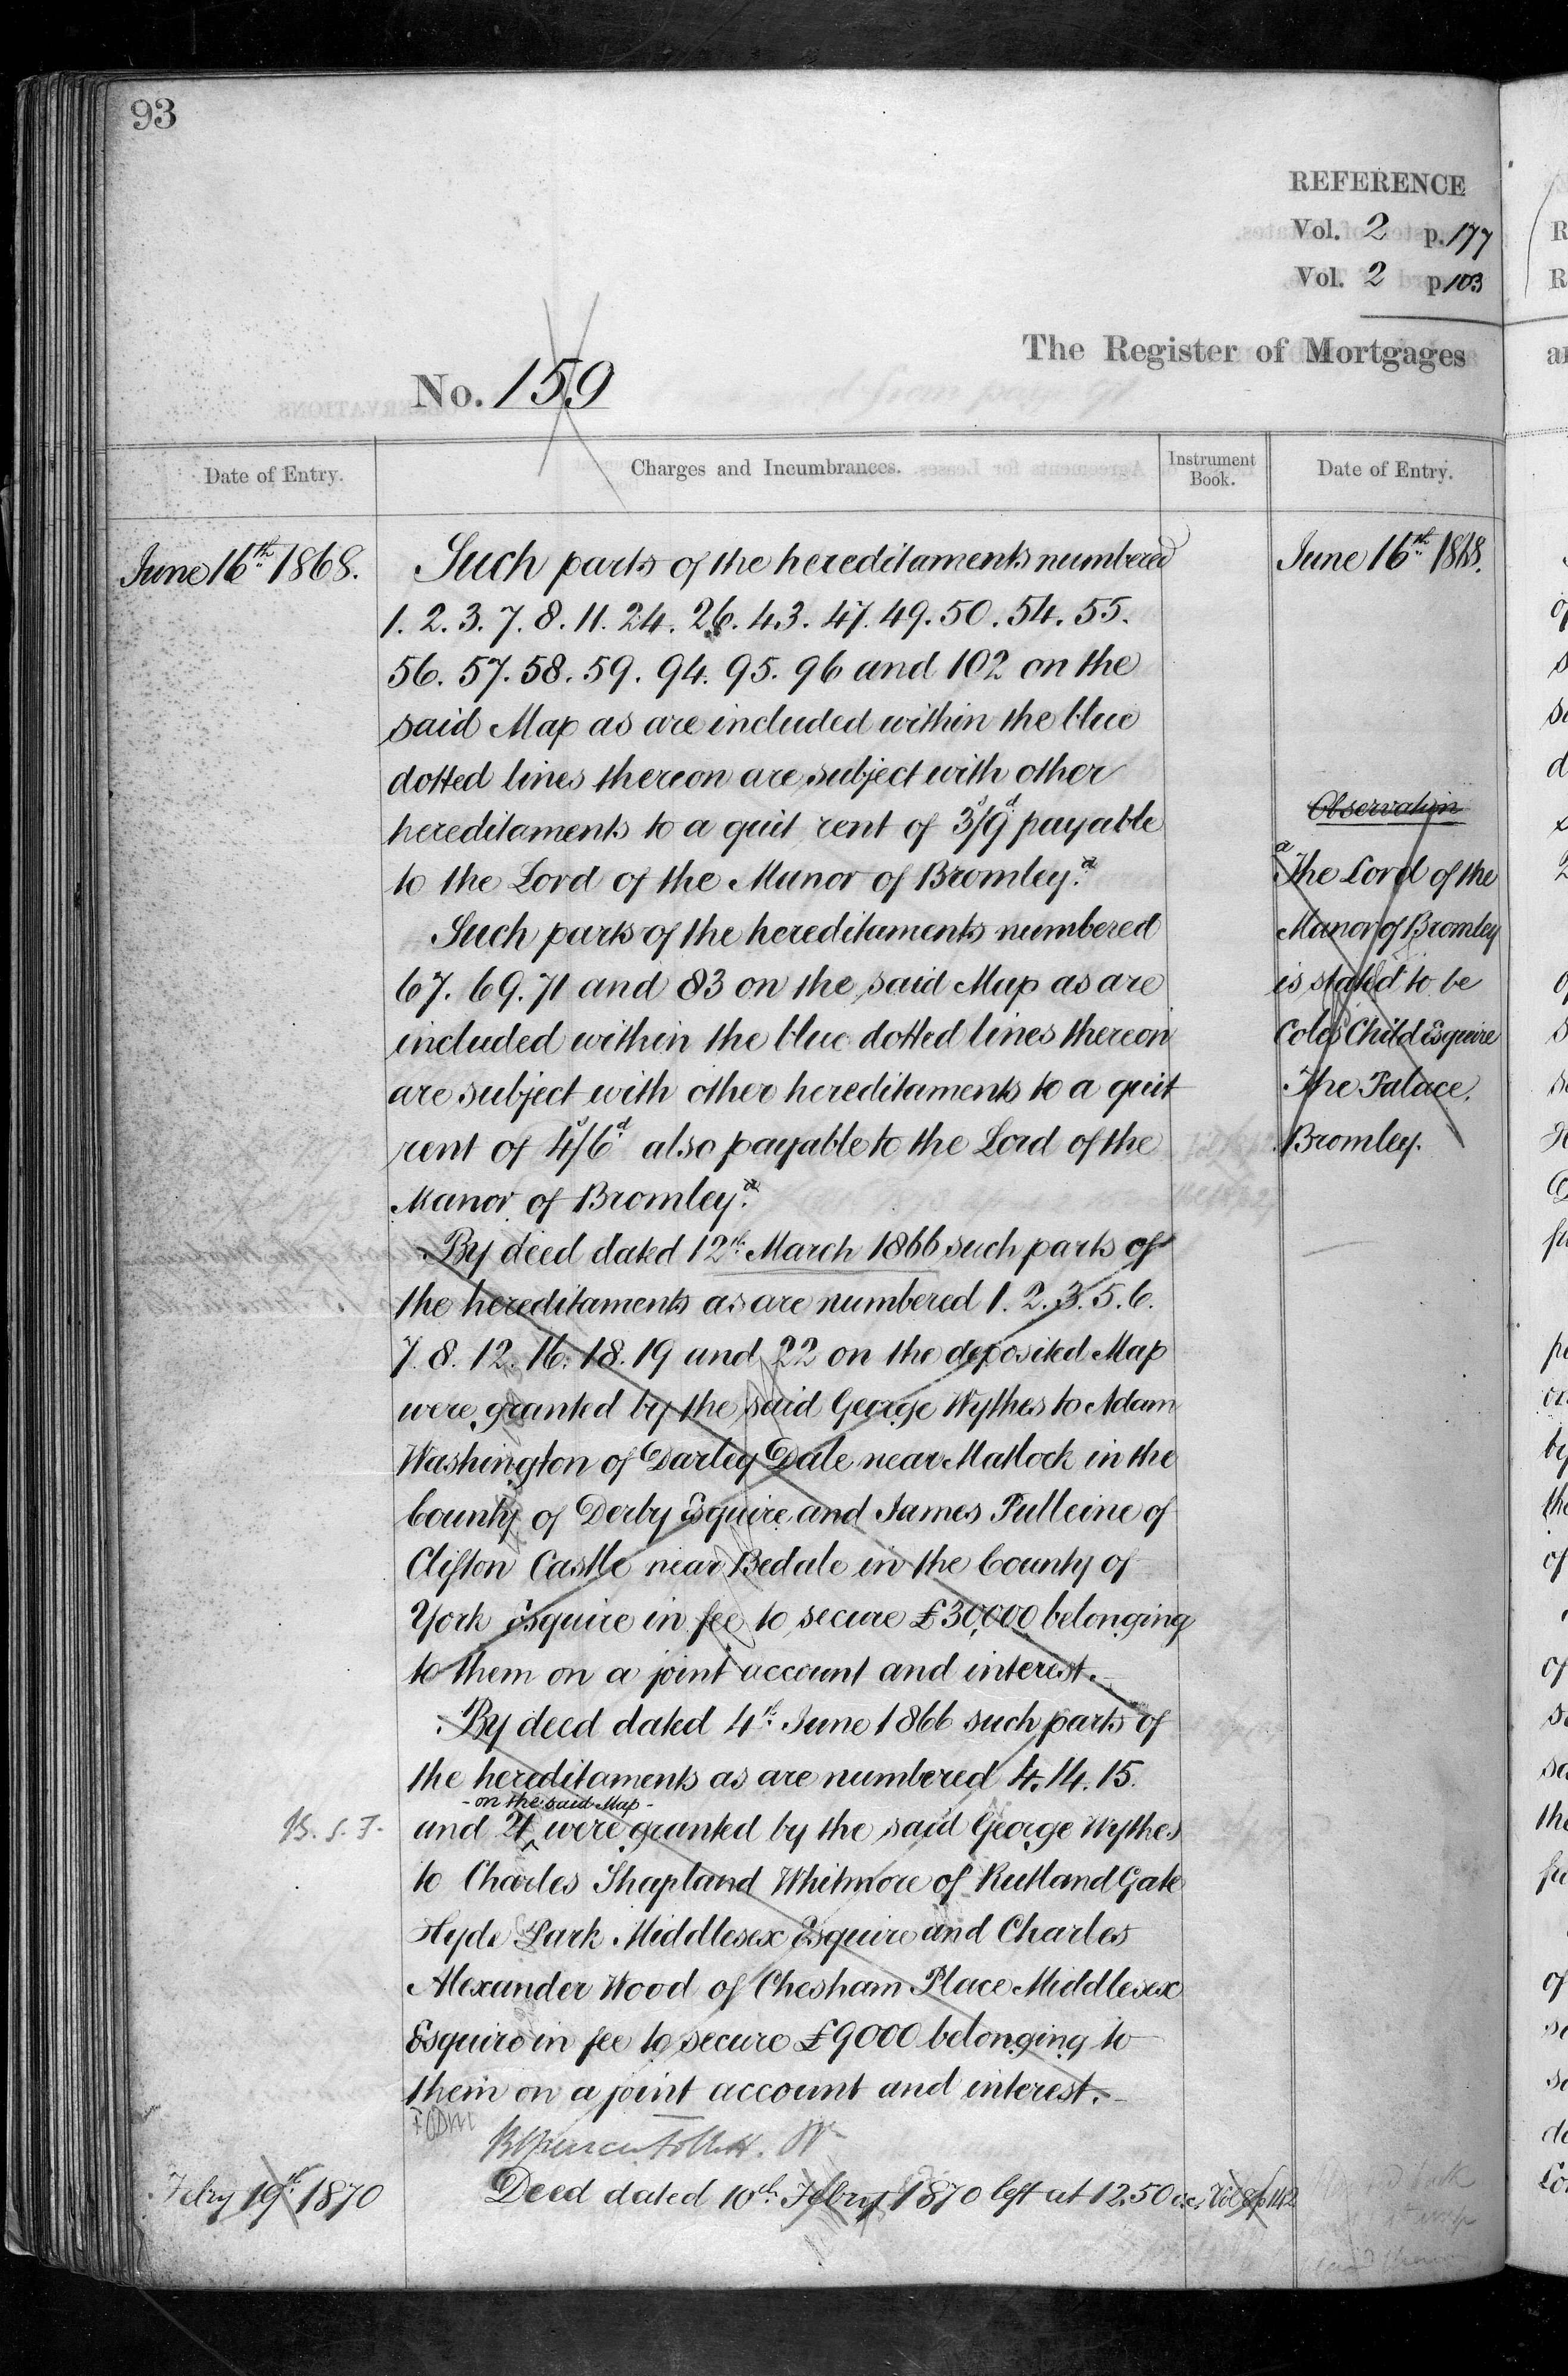 93
REFERENCE
Vol. 2 p. 177
Vol. 2 p 103
The Register of Mortgages
No. 159
Date of Entry.
Charges and Incumbrances.
Instrument Book.
Date of Entry.
June 16th 1868.
Such parts of the hereditaments numbered
1. 2. 3. 7. 8. 11. 24. 26. 43. 47. 49. 50. 54. 55.
56. 57. 58. 59. 94. 95. 96 and 102 on the
said Map as are included within the blue
dotted lines thereon are subject with other
hereditaments to a quit rent of 3s/9d payable
to the Lord of the Manor of Bromley. a
Such parts of the hereditaments numbered
67. 69. 71 and 83 on the said Map as are
included within the blue dotted lines thereon
are subject with other hereditaments to a quit
rent of 4s/6d also payable to the Lord of the
Manor of Bromley. a
By deed dated 12th March 1866 such parts of
the hereditaments as are numbered 1. 2. 3. 5. 6.
7. 8. 12. 16. 18. 19 and 22 on the deposited Map
were granted by the said George Wythes to Adam
Washington of Darley Dale near Matlock in the
County of Derby Esquire and James Pulleine of
Clifton Castle near Bedale in the County of
York Esquire in fee to secure £30,000 belonging
to them on a joint account and interest.
By deed dated 4th June 1866 such parts of
the hereditaments as are numbered 4. 14. 15.
- on the said Map -
and 21 were granted by the said George Wythes
to Charles Shapland Whitmore of Rutland Gate
Hyde Park Middlesex Esquire and Charles
Alexander Wood of Chesham Place Middlesex
Esquire in fee to secure £9000 belonging to
them on a joint account and interest.
Febry 19th 1870
Deed dated 10th Febry 1870 left at 12.50
Vol 8 p 142
June 16th 1868.
Observation
a The Lord of the
Manor of Bromley
is stated to be
Coles Child Esquire
The Palace,
Bromley.